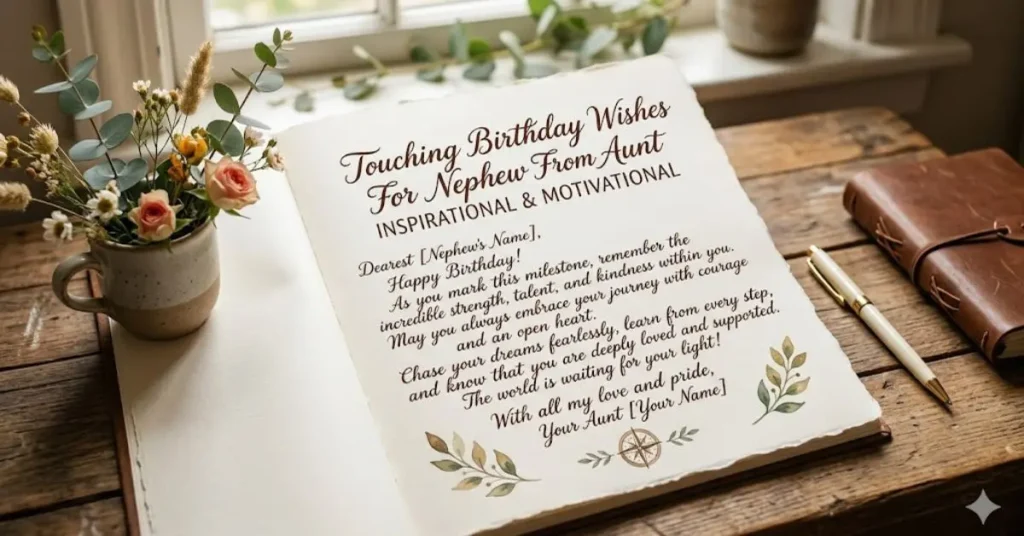 Touching Birthday Wishes
For Nephew From Aunt
INSPIRATIONAL & MOTIVATIONAL
Dearest [Nephew's Name],
Happy Birthday!
As you mark this milestone, remember the
incredible strength, talent, and kindness within you.
May you always embrace your journey with courage
and an open heart.
Chase your dreams fearlessly, learn from every step,
and know that you are deeply loved and supported.
The world is waiting for your light!
With all my love and pride,
Your Aunt [Your Name]